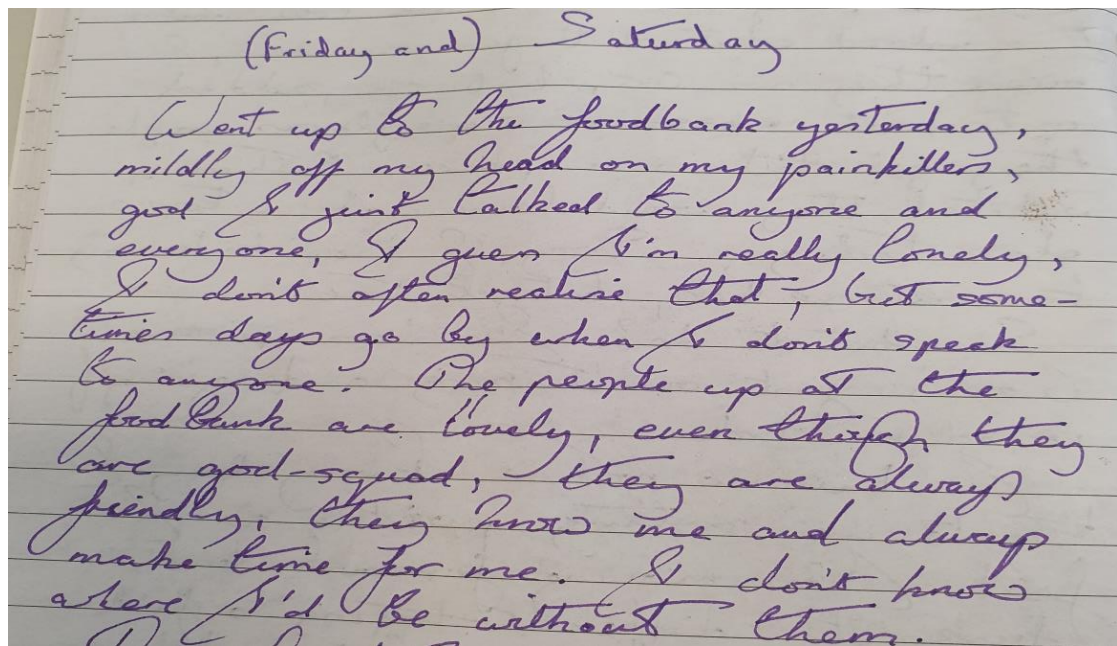 (Friday and) Saturday
Went up to the foodbank yesterday,
mildly off my head on my painkillers,
god I just talked to anyone and
everyone, I guess I'm really lonely,
I don't often realise that, but some-
times days go by when I don't speak
to anyone. The people up at the
foodbank are lovely, even though they
are god-squad, they are always
friendly, they know me and always
make time for me. I don't know
where I'd be without them.